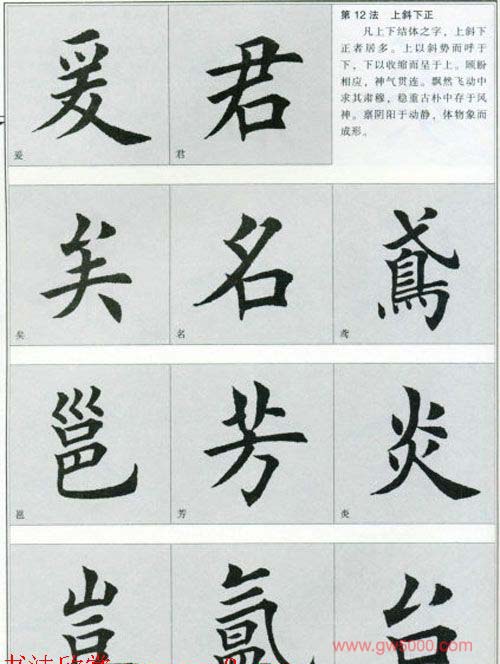 第12法 上斜下正
凡上下结体之字，上斜下
正者居多。上以斜势而呼于
下，下以收缩而呈于上。顾盼
相应，神气贯连。飘然飞动中
求其肃穆，稳重古朴中存于风
神。禀阴阳于动静，体物象而
成形。
爰 君
爰 君
矣 名 鳶
矣 名 鸢
邕 芳 炎
邕 芳 炎
豈 台
书法欣赏
www.gw5000.com